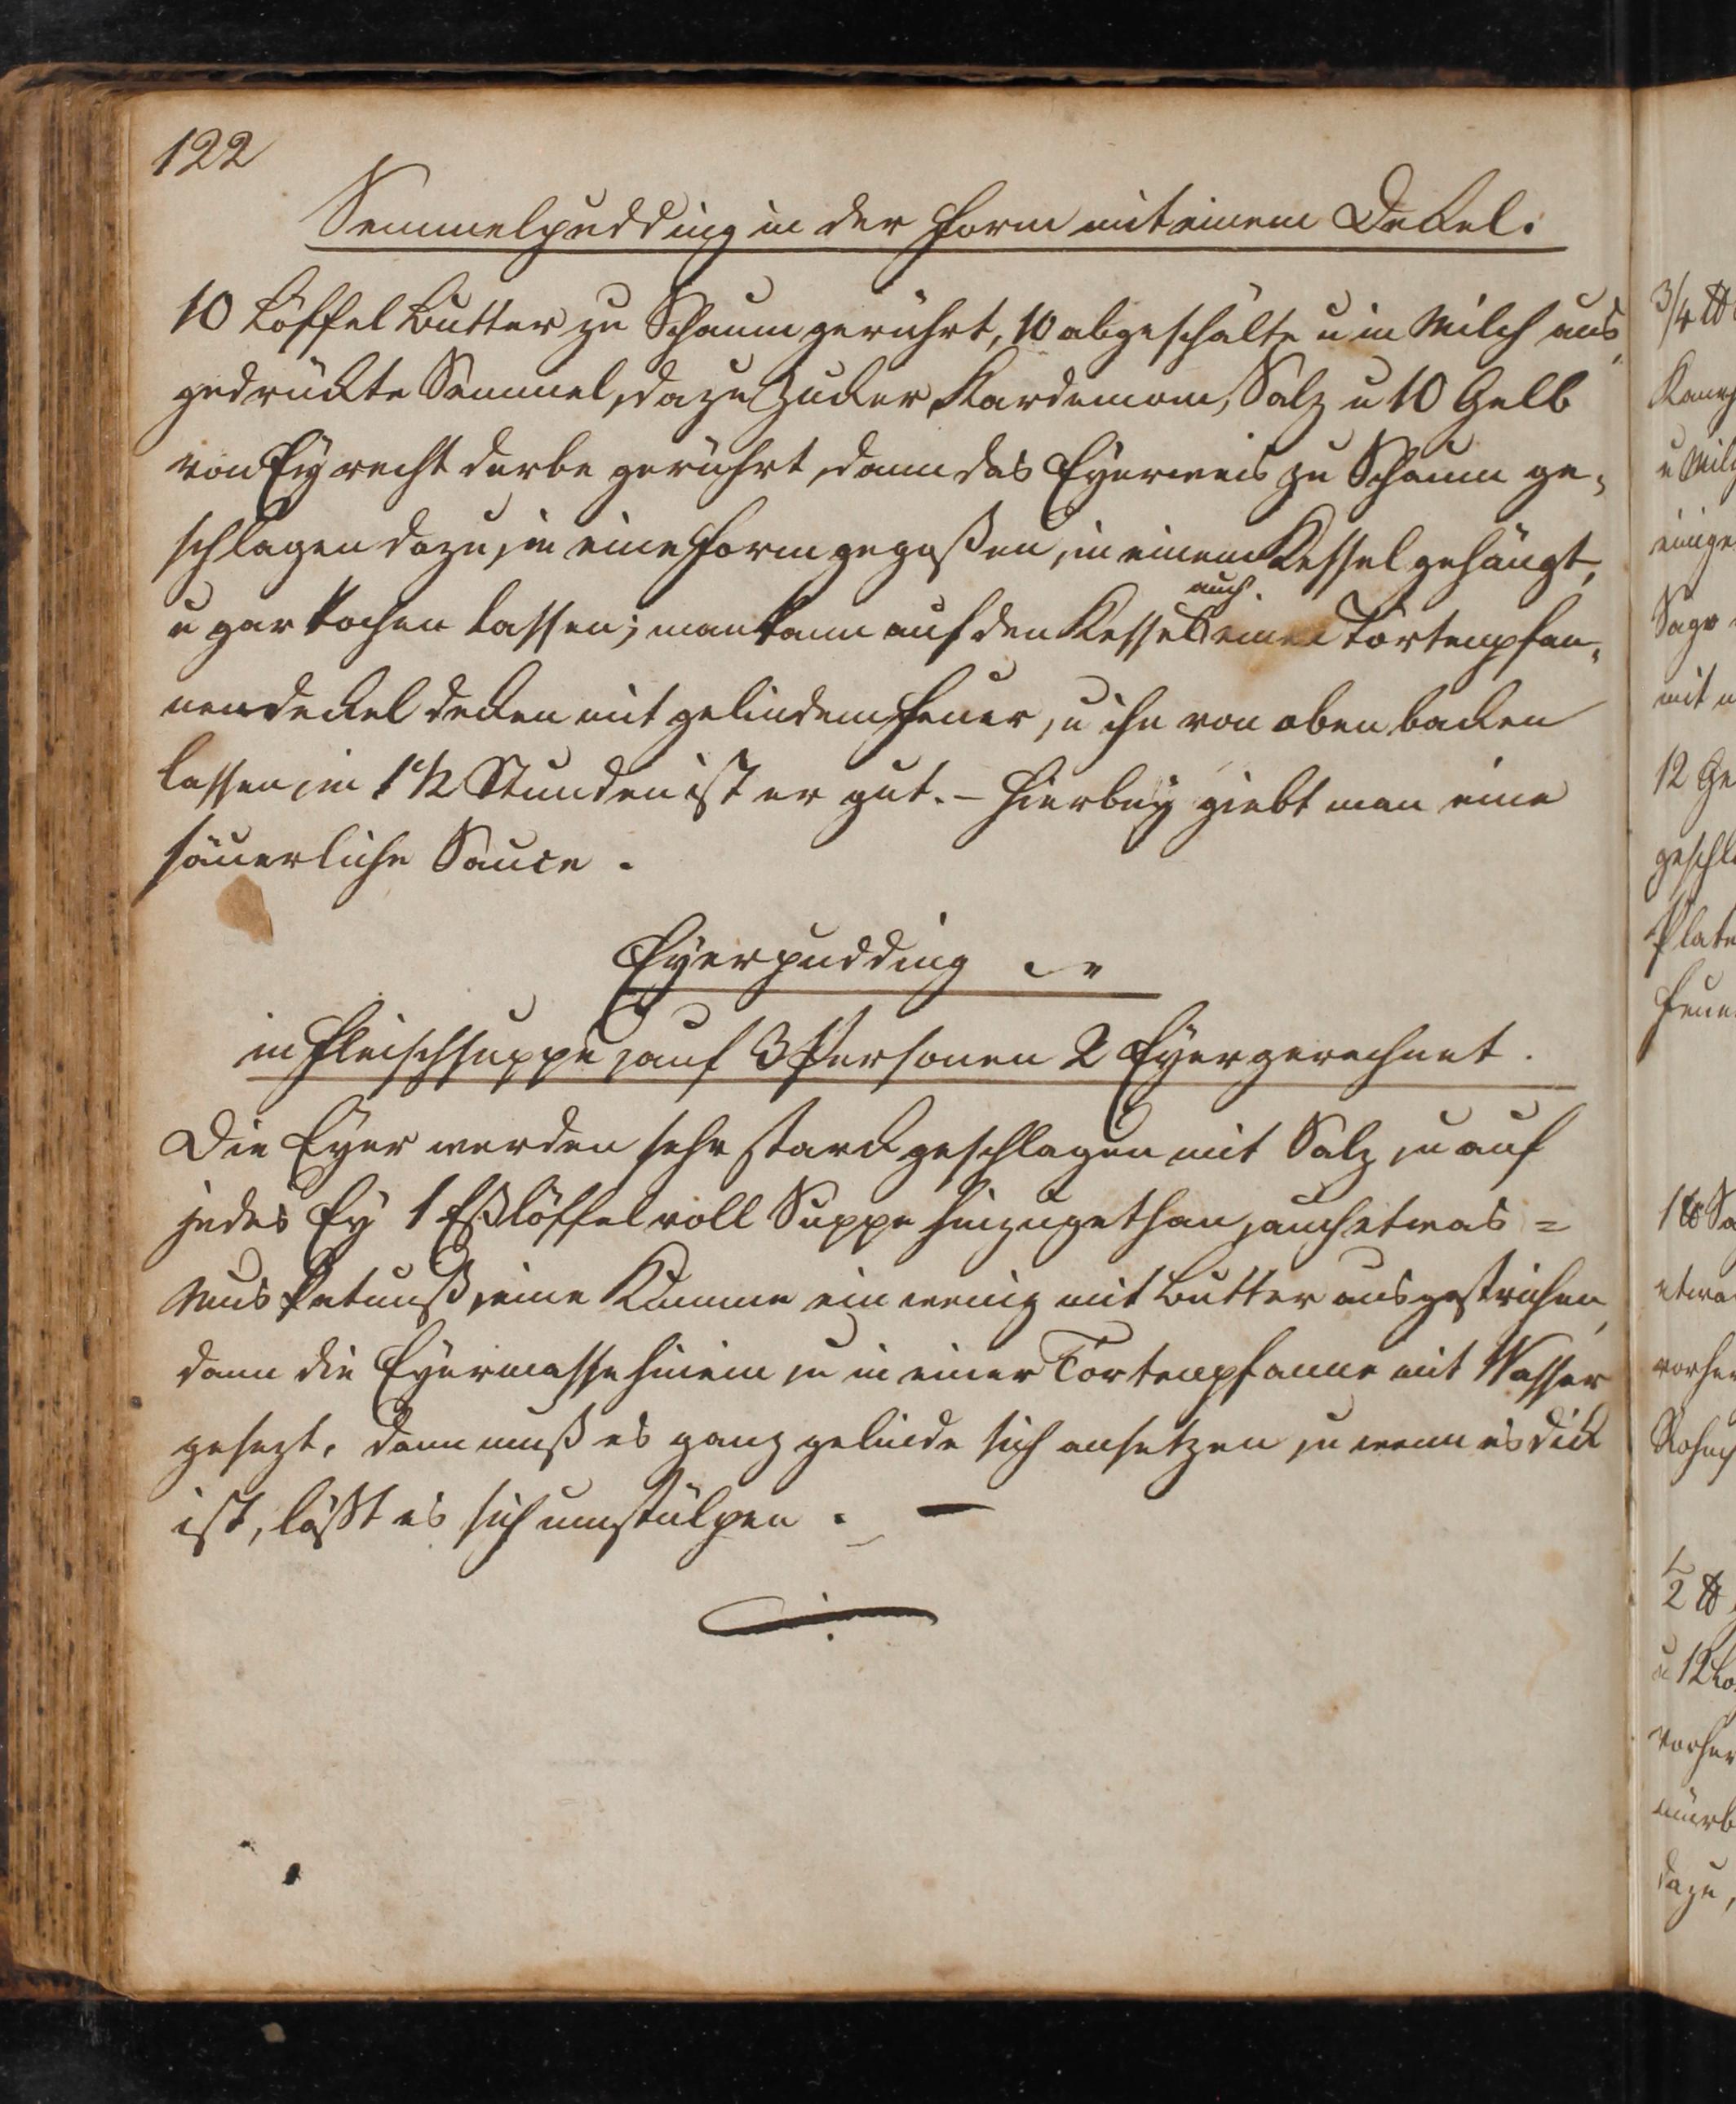 122
Semmelpudding in der Form mit einem Deckel.
10 Löffel Butter zu Schaum gerührt, 10 abgeschälte u in Milch aus,
gedrückte Semmel, dazu Zucker, Kardemom, Salz u 10 Gelb
von Ey recht derbe gerührt, dann das Eyerweis zu Schaum ge,
schlagen dazu, in eine Form gegoßen, in einem Kessel gehängt,
u gar kochen lassen; man kann auf den Kessel auch einen Tortenpfan,
nendeckel decken mit gelindem Feuer, u ihn von oben backen
lassen, in 1 1/2 Stunden ist er gut. – Hierbey giebt man eine
säuerliche Sauce.
Eyerpudding
in Fleischsuppe, auf 3 Personen 2 Eyer gerechnet.
Die Eyer werden sehr starck geschlagen mit Salz, u auf
jedes Ey 1 Eßlöffel voll Suppe hinzugethan, auch etwas =
Muskatnuß, eine Kumme ein wenig mit Butter ausgestrichen,
dann die Eyermasse hinein, u in einer Tortenpfanne mit Wasser
gesezt, dann muß es ganz gelinde sich ansetzen, u wenn es dick
ist, läßt es sich umstülpen. –
3/4 ℔
u Milch
einge
Sago
mit
12 Ge
geschl
Plate
Feue
1 ℔ Sa
etwa
vorher
1/2 ℔
u 12 Lo
vorher
mürb
dazu,